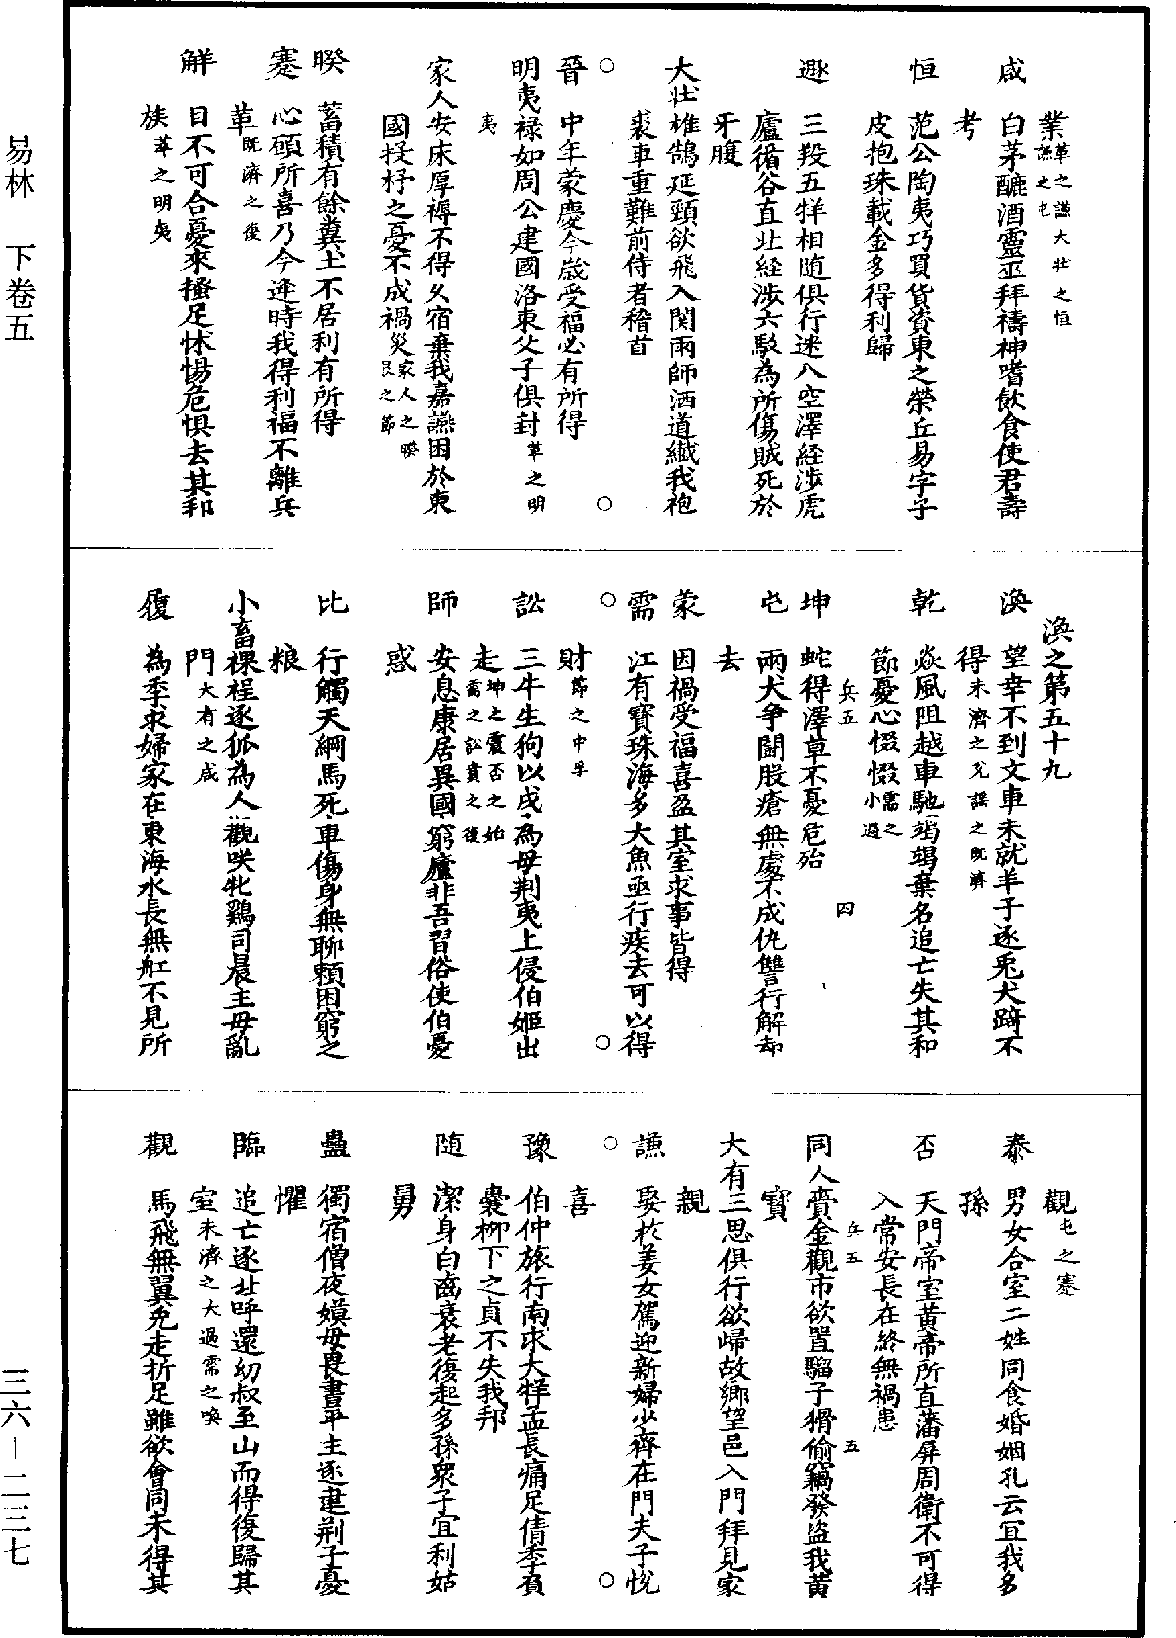 業革之謙大壯之恒謙之屯
咸 白茅醴酒靈巫拜禱神嗜飲食使君壽
考
恒 范公陶夷巧買貨資東之榮丘易字子
皮抱珠載金多得利歸
遯 三羖五牂相随俱行迷入空澤経渉虎
廬循谷直北経渉六駁為所傷賊死於
牙腹
大壯 雄鵠延頸欲飛入関雨師洒道纎我袍
裘車重難前侍者稽首
晉 中年蒙慶今歳受福必有所得
明夷 禄如周公建國洛東父子俱封革之明
夷
家人 安床厚褥不得久宿棄我嘉讌困於東
國投杼之憂不成禍災家人之睽艮之節
睽 蓄積有餘糞土不居利有所得
蹇 心願所喜乃今逢時我得利福不離兵
革既濟之復
解 目不可合憂來搔足怵惕危惧去其邦
族萃之明夷
渙之第五十九
渙 望幸不到文車未就羊子逐兎犬踦不
得未濟之兌謙之既濟
乾 焱風阻越車馳掲掲棄名追亡失其和
節憂心惙惙需之小過
坤 蛇得澤草不憂危殆
兵五 四
屯 兩犬争鬭股瘡無處不成仇讐行解却
去
蒙 因禍受福喜盈其室求事皆得
需 江有寳珠海多大魚亟行疾去可以得
財節之中孚
訟 三牛生狗以戌為母荆夷上侵伯姬出
走坤之震否之姤需之訟賁之復
師 安息康居異國窮廬非吾習俗使伯憂
惑
比 行觸天綱馬死車傷身無聊頼困窮乏
粮
小畜 裸裎逐狐為人觀咲牝鷄司晨主母亂
門大有之咸
履 為季求婦家在東海水長無舡不見所
觀屯之蹇
泰 男女合室二姓同食婚姻孔云冝我多
孫
否 天門帝室黄帝所直藩屏周衛不可得
入常安長在終無禍患
同人 賷金觀市欲置騮子猾偷竊發盗我黄
兵五 五
寳
大有 三思俱行欲歸故郷望邑入門拜見家
親
謙 娶於姜女駕迎新婦少齊在門夫子悅
喜
豫 伯仲旅行南求大牂孟長痛足倩季負
嚢柳下之貞不失我邦
随 潔身白齒衰老復起多孫衆子宜利姑
舅
蠱 獨宿僧夜嫫母畏晝平主逐建荆子憂
懼
臨 追亡逐北呼還幼叔至山而得復歸其
室未濟之大過需之喚
觀 馬飛無翼兎走折足雖欲會同未得其
易林 下卷五
三六-二三七